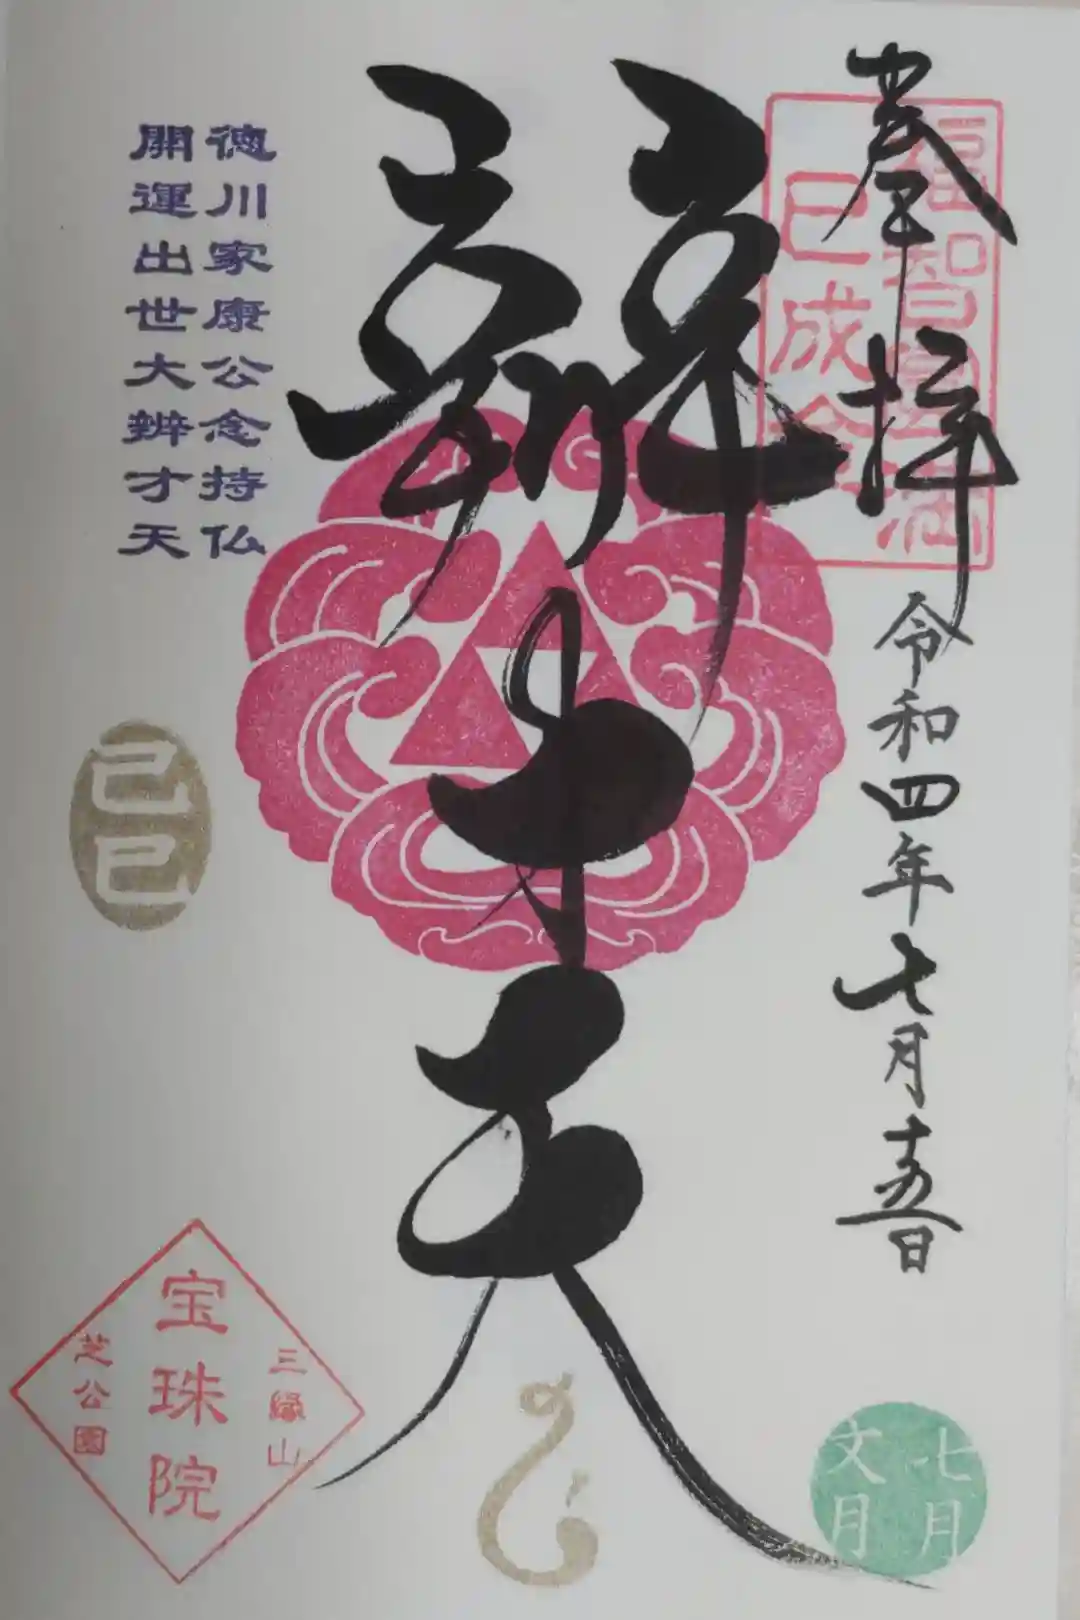 奉拝
令和四年七月十五日
巳成金
辨才天
徳川家康公念持仏
開運出世大辨才天
己巳
三縁山
宝珠院
芝公園
七月
文月